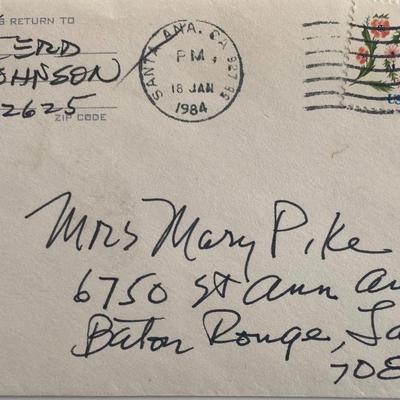 S RETURN TO
FERD
JOHNSON
2625
ZIP CODE
SANTA ANA, CA 927 05
PM
18 JAN
1984
US
Mrs Mary Pike
6750 St Ann A
Baton Rouge, La
708